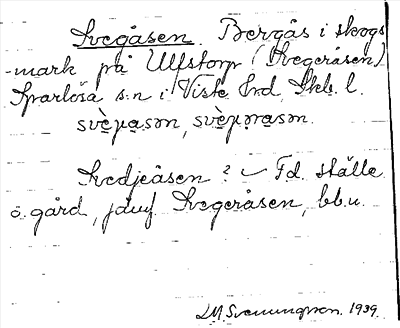 Svegåsen Bergås i skogs
-mark på Ulfstorp (Svegeråsen)
Sparlösa s:n i Viste hrd, Skb. l.
Svedjeåsen ? Fd. ställe
o. gård, jämf Svegeråsen, bb.u.
LM. Svenungsson. 1939.